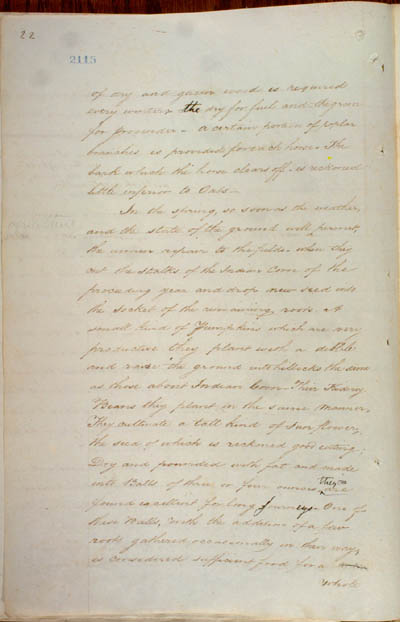 22
2115
of dry and green wood is required
every winter, the dry for fuel and the green
for provender - a certain portion of poplar
branches is provided for each horse - The
bark which the horse clears off is reckoned
little inferior to Oats -
In the spring, so soon as the weather,
and the state of the ground will permit,
the women repair to the fields - when they
cut the stalks of the Indian Corn of the
preceding year and drop new seed into
the socket of the remaining roots - A
small kind of Pumpkins which are very
productive they plant with a dibble
and raise the ground into hillocks the same
as those about Indian Corn - Their Kidney
Beans they plant in the same manner,
They cultivate a tall kind of Sunflower,
the seed of which is reckoned good eating;
Dry and pounded with fat and made
into Balls of three or four ounces they are
found excellent for long Journeys - One of
these Balls, with the addition of a few
roots gathered occasionally on the way,
is considered sufficient food for a
whole